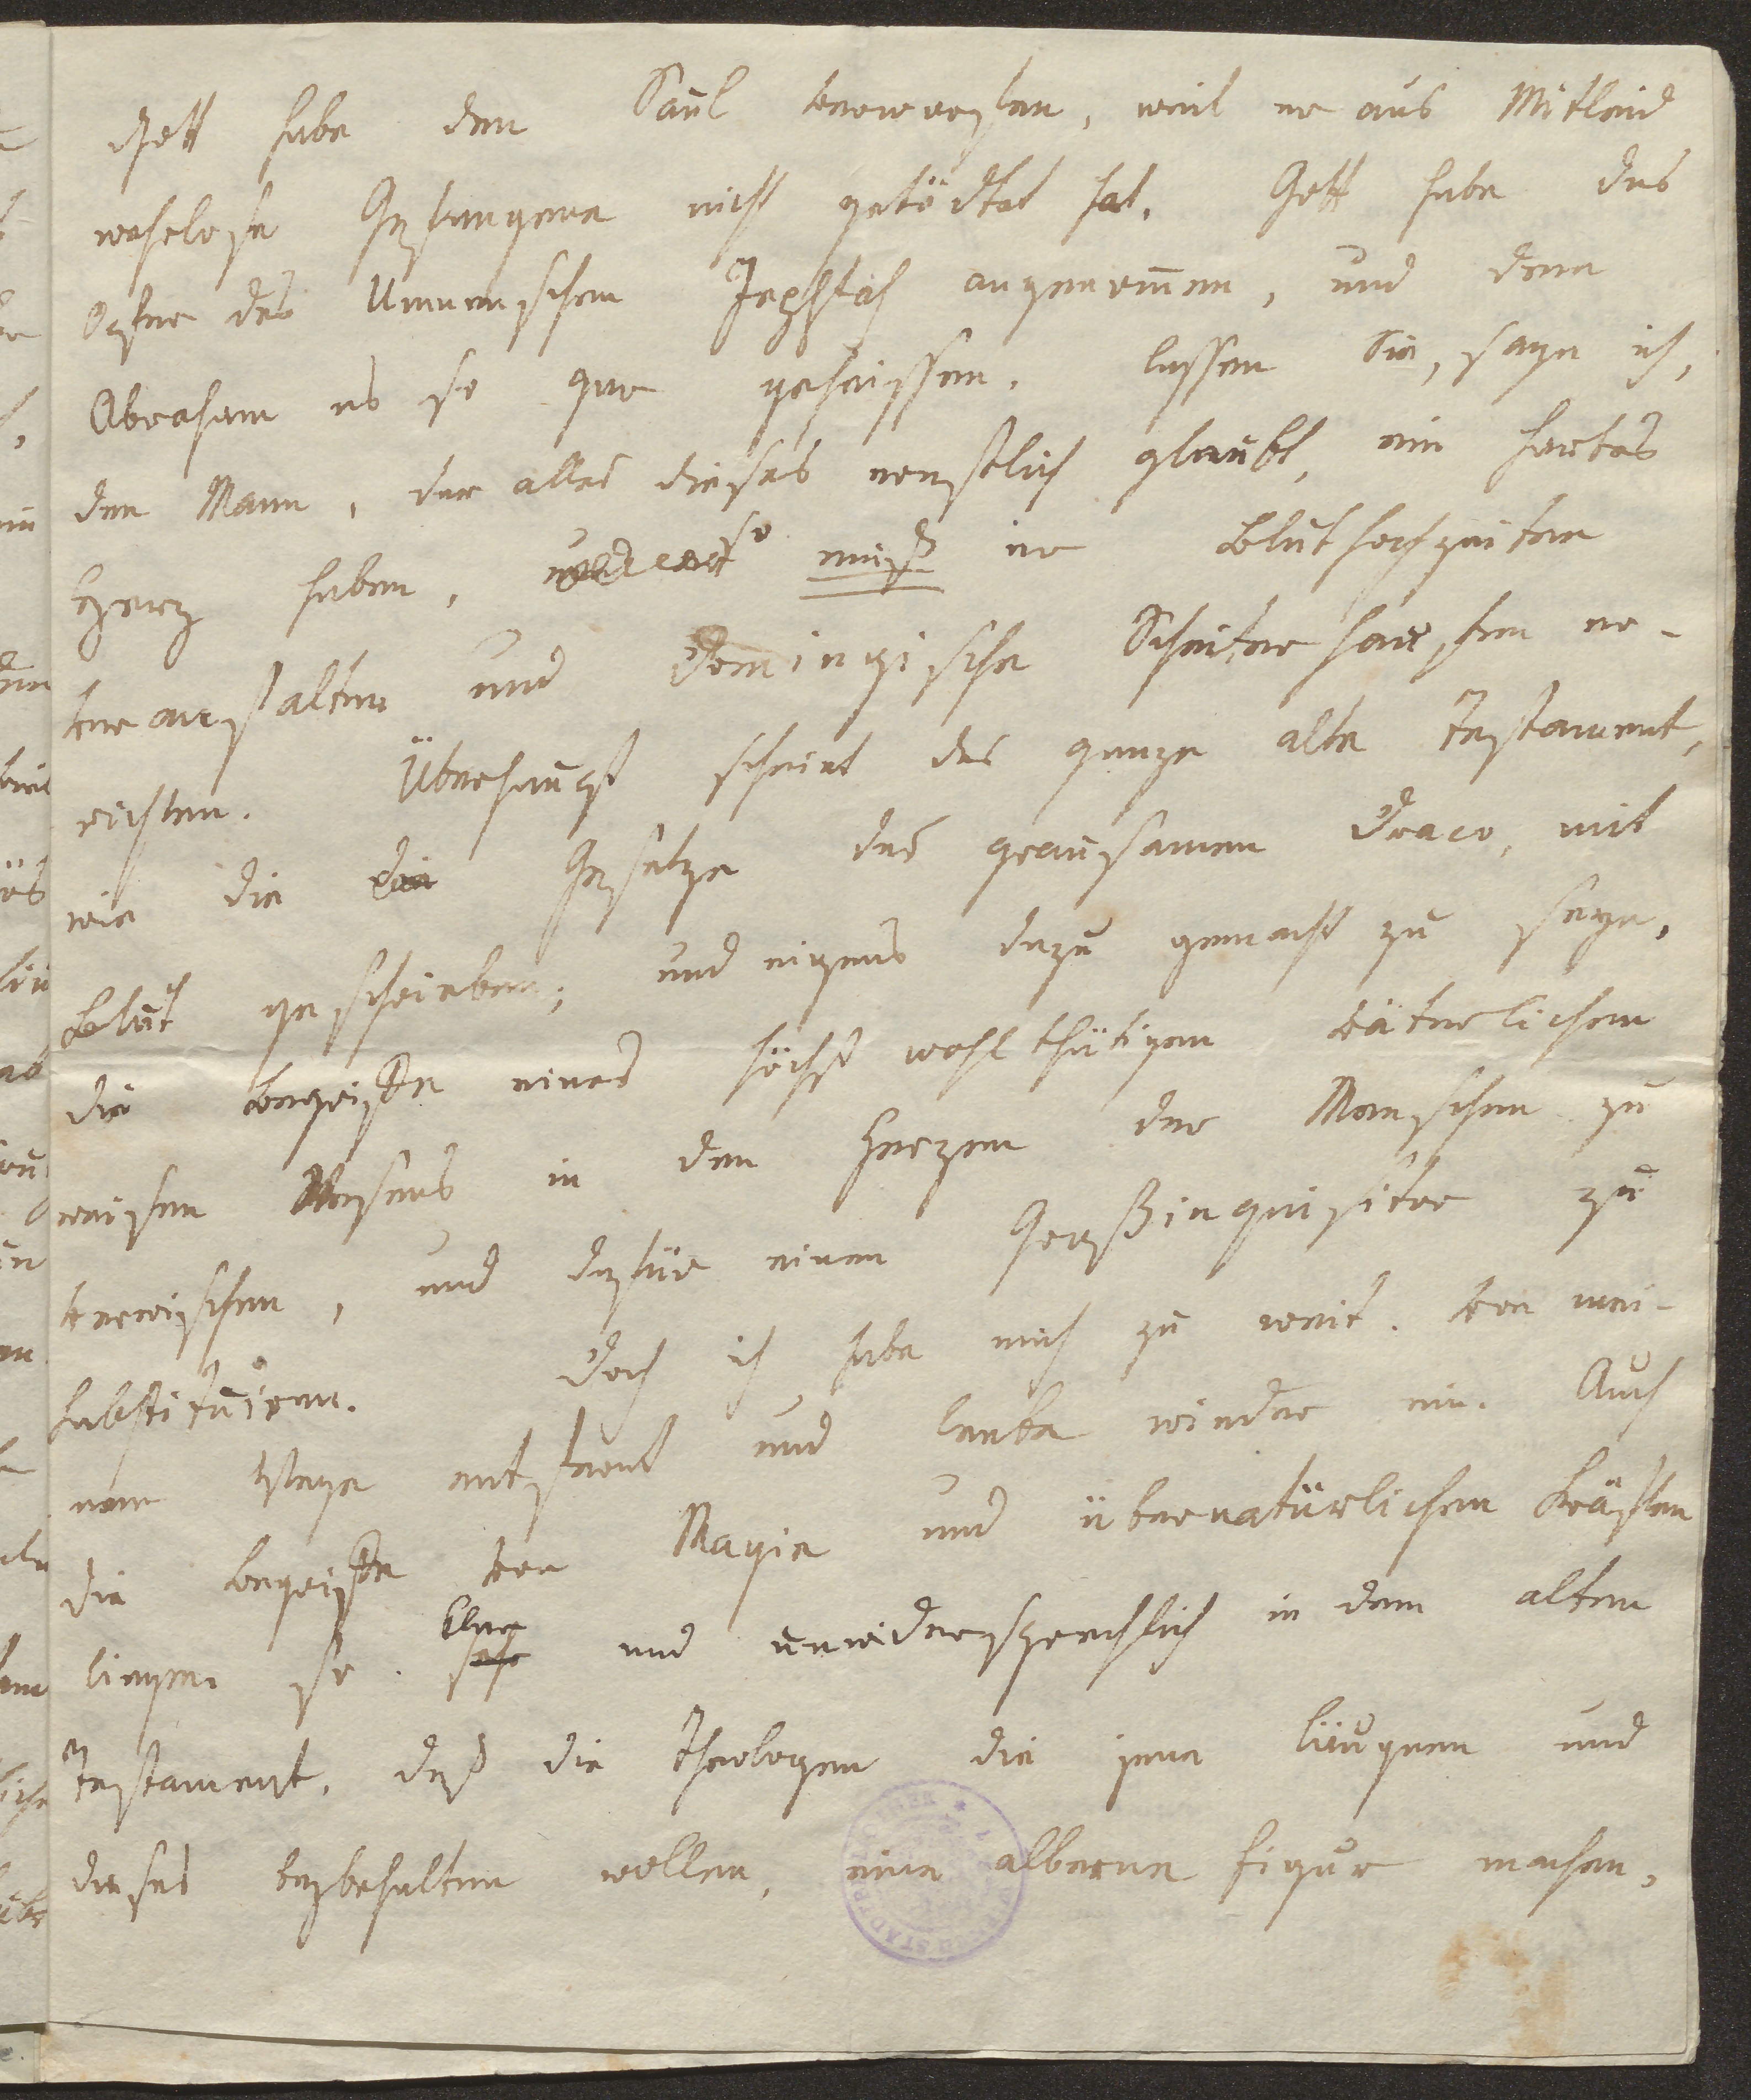 Gott habe den Saul verworfen, weil er aus Mitleid
wehrlose Gefangene nicht getödtet hat. Gott habe das
Opfer des Unmenschen Jephtah angenommen, und dem
Abraham es so gar geheissen. lassen Sie, sage ich,
den Mann, der alles dieses ernstlich glaubt, ein hartes
Herz haben, so muß er Bluthochzeiten
veranstalten und Domingische Scheiterhaufen er-
richten. Überhaupt scheint das ganze alte Testament,
wie die die Gesetze des grausamen Draco, mit
Blut geschrieben; und eigens dazu gemacht zu seyn,
die Begriffe eines höchst wohlthätigen väterlichen
weisen Wesens in den Herzen der Menschen zu
verwischen, und dafür einen Großinquisitor zu
substituiren. Doch ich habe mich zu weit von mei-
nem Wege entfernt und lenke wieder ein. Auch
die Begriffe von Magie und übernatürlichen Kräften
liegen so klar und unwidersprechlich in dem alten
Testament, daß die Theologen die jene läugnen und
dieses beybehalten wollen, eine alberne figur machen,